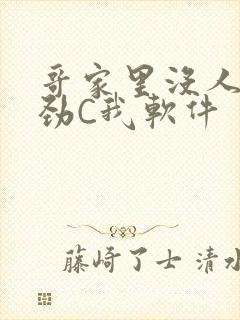 哥家里没人
劲C我软件
藤崎了士 清水